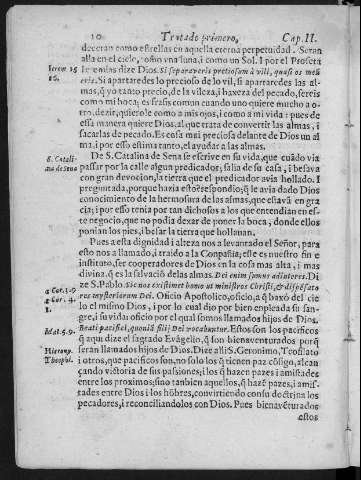 10 Tratado primero, Cap. II.
deceran como estrellas en aquella eterna perpetuidad. Seran
alla en el cielo, como vna luna, i como vn Sol. I por el Profeta
Ierem. 15 Ieremias dize Dios. Si separaveris pretiosum à vili, quasi os meũ
eris. Si apartaredes lo precioso de lo vil, si apartaredes las al-
mas, q̃ yo tanto precio, de la vileza, i baxeza del pecado, sereis
como mi boca; es frasis comun cuando uno quiere mucho a o-
tro, dezir, quierole como a mis ojos, i como a mi vida: pues de
essa manera quiere Dios al, que trata de convertir las almas, i
sacarlas de pecado. Es cosa mui preciosa delante de Dios un al
ma, i por esso estima tanto, el ayudar a las almas.
S. Catali- De S. Catalina de Sena se escrive en su vida, que cuãdo via
na de Sena passar por la calle algun predicador, salia de su casa, i besava
con gran devocion, la tierra que el predicador avia hollado. I
preguntada, porque hazia esto? respondio; q̃ le avia dado Dios
conocimiento de la hermosura de las almas, que estavã en gra
cia; i por esso tenia por tan dichosos a los que entendian en es-
te negocio, que no podia dexar de poner la boca, donde ellos
ponian los pies, i besar la tierra que hollauan.
Pues a esta dignidad i alteza nos a levantado el Señor, para
esto nos a llamado, i traido a la Conpañia; este es nuestro fin e
instituto, ser cooperadores de Dios en la cosa mas alta, i mas
divina, q̃ es la salvaciõ de las almas. Dei enim sumus adiutores. Di
ze S. Pablo. Sic nos existimet homo ut ministros Christi, & dispẽsato
res mysteriorum Dei. Oficio Apostolico, oficio, a q̃ baxó del cie
lo el mismo Dios, i por lo cual dio por bien enpleada su san-
gre, i su vida; oficio por el qual somos llamados hijos de Dios.
Mat. 5. 9. Beati pacifici, quoniã filij Dei vocabuntur. Estos son los pacificos
q̃ aqui dize el sagrado Evãgelio, q̃ son bienaventurados porq̃
Hierony. seran llamados hijos de Dios. Dize alli S. Geronimo, Teofilato
Theophil. i otros, que pacificos son, no solo los q̃ tienen paz cõsigo, alcan
çando victoria de sus passiones; i los q̃ hazen pazes i amistades
entre los proximos; sino tanbien aquellos, q̃ hazẽ pazes, i amis-
tades entre Dios i los hõbres, convirtiendo con su doctrina los
pecadores, i reconciliandolos con Dios. Pues bienavẽturados
estos